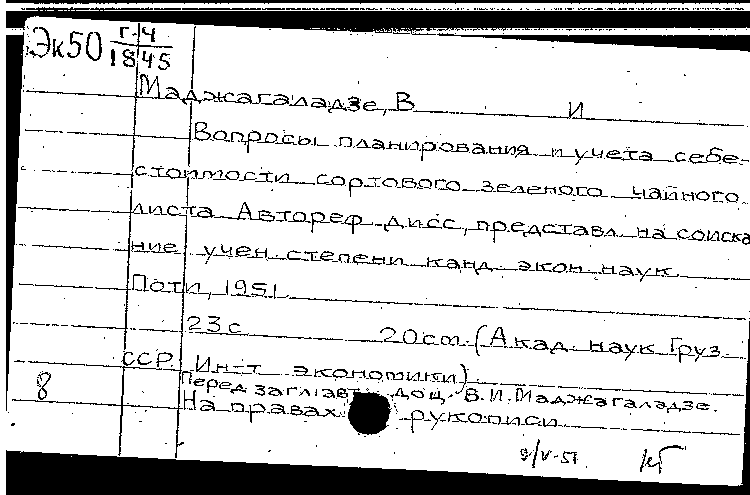 Эк50 Г-4
18 45
Маджагаладзе, В И
Вопросы планирования и учета себе-
стоимости сортового зеленого чайного
листа Автореф. дисс, представл. на соиска
ние учен. степени канд. экон. наук
Поти, 1951.
23с 20см. (Акад. наук Груз.
ССР. Ин-т экономики)
Перед загл: авт. В.И. Маджагаладзе.
8 На правах рукописи
9/V-51.